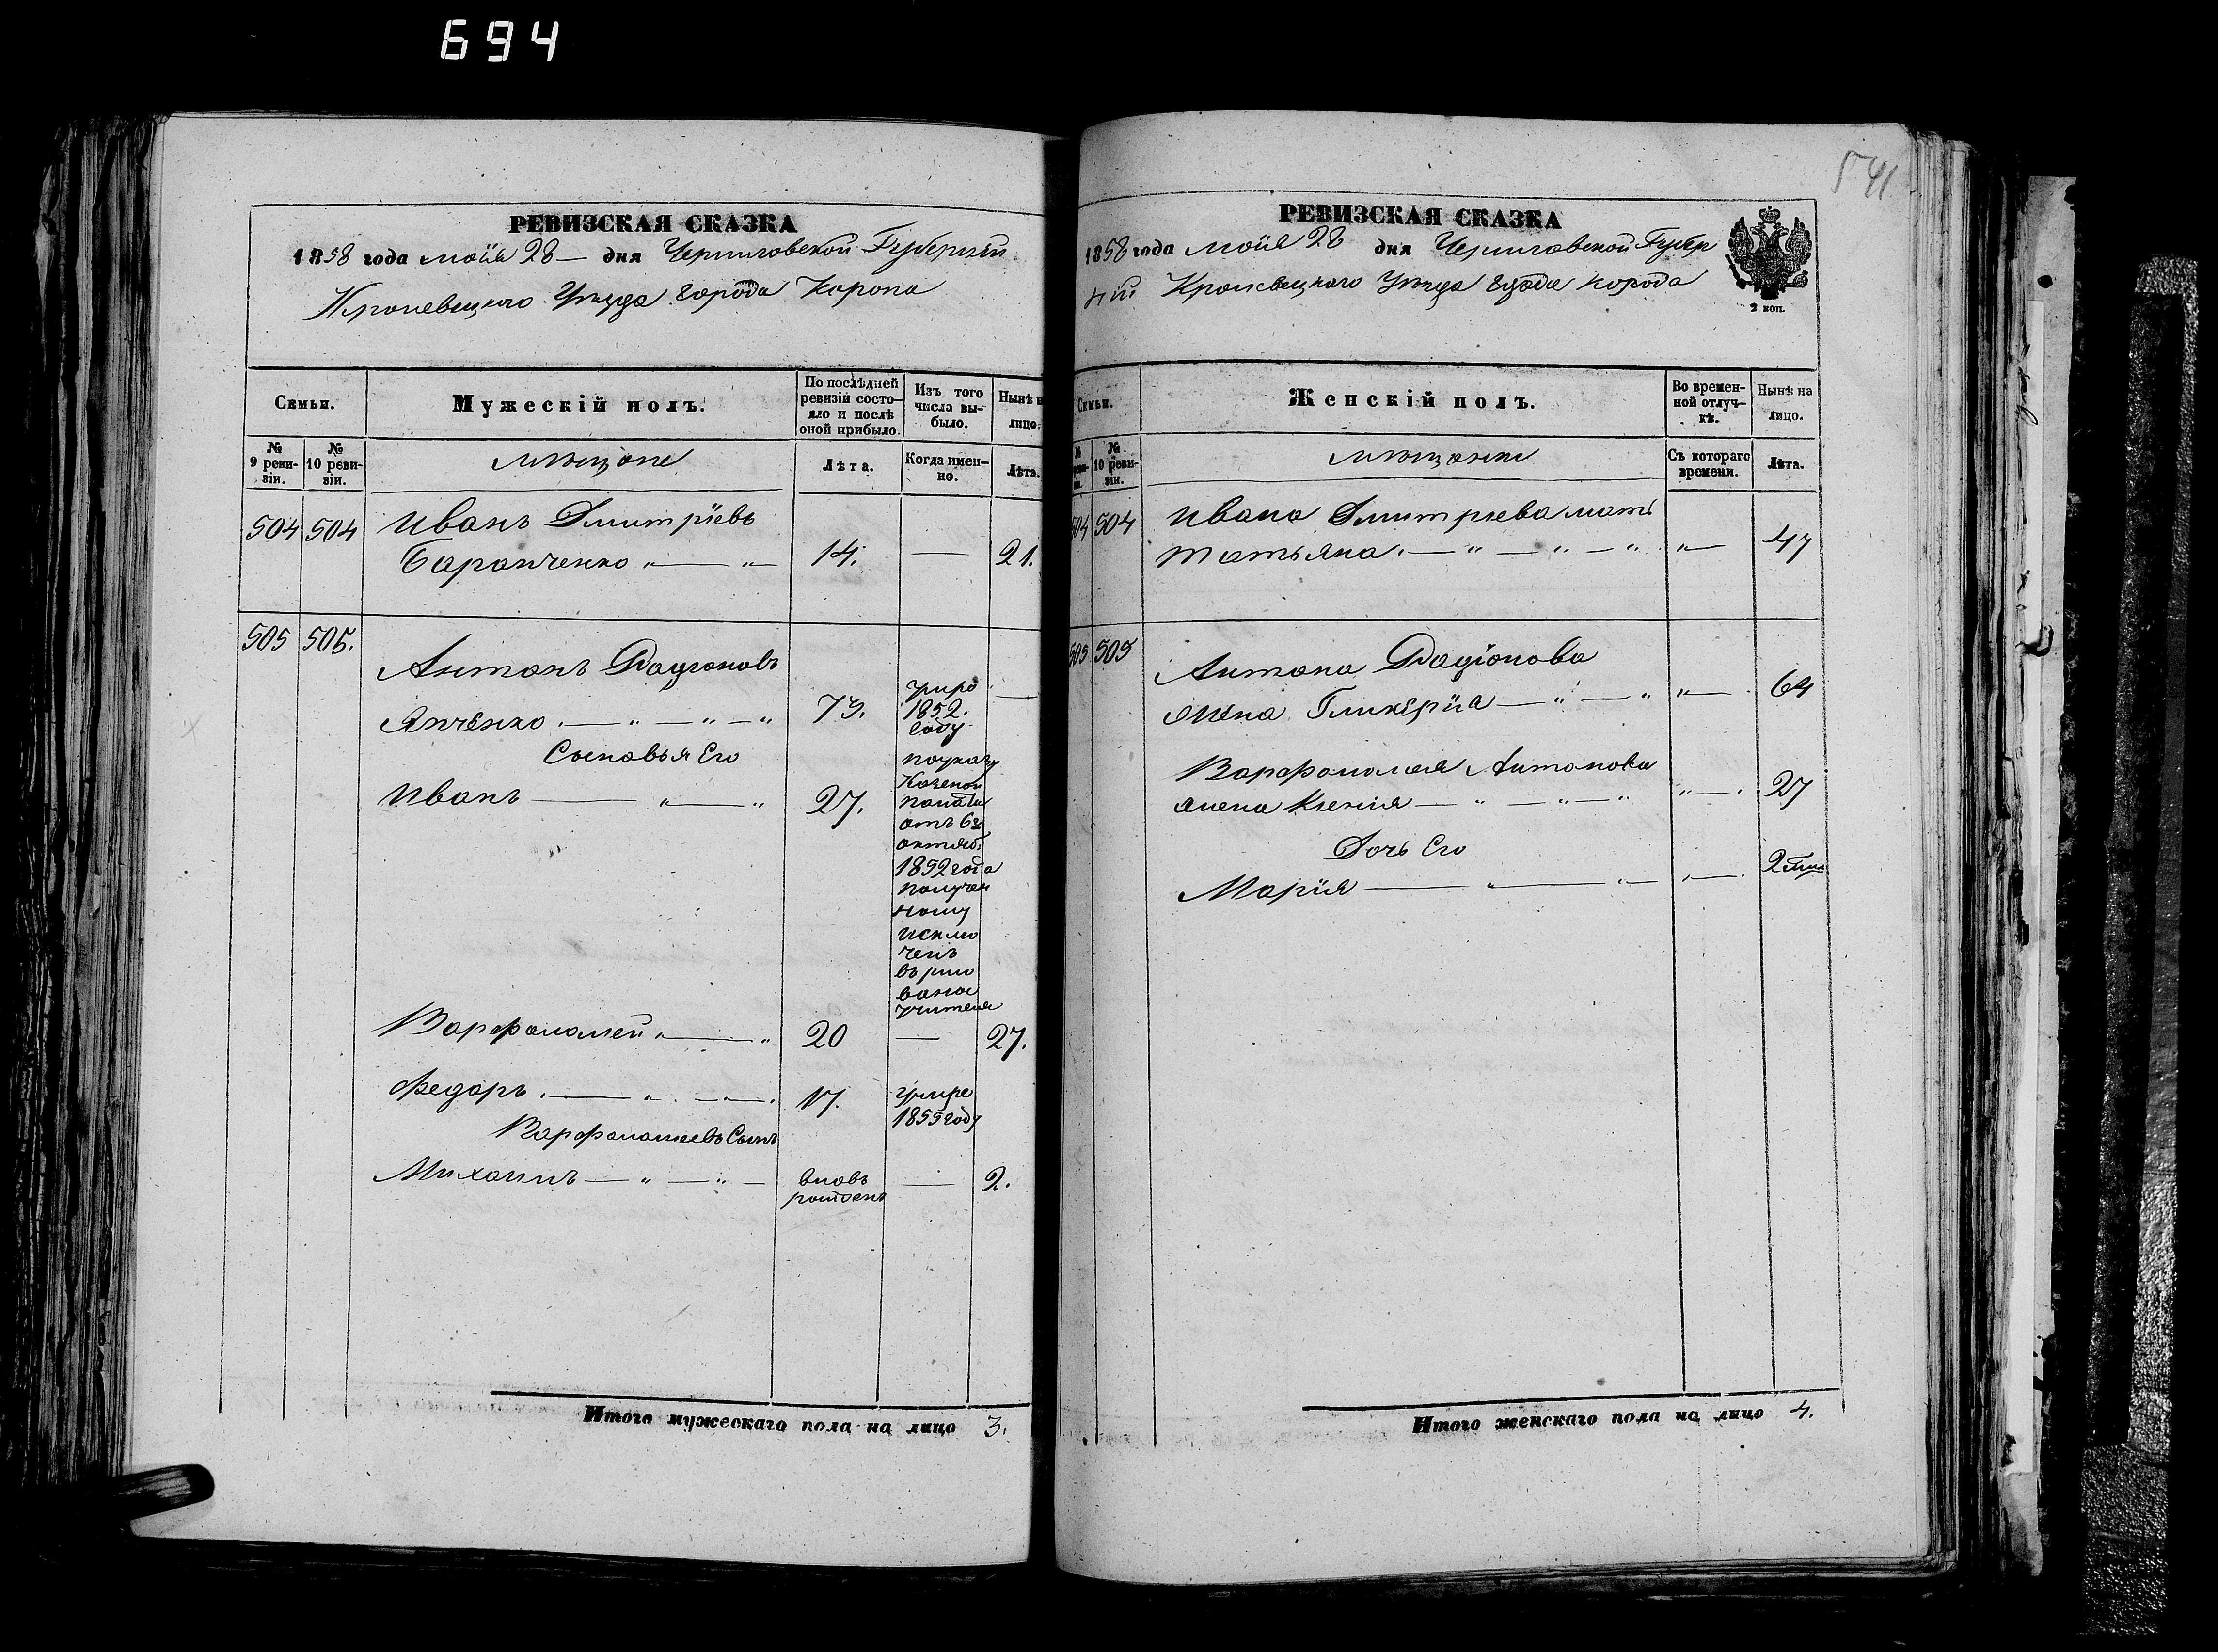 694
541
РЕВИЗСКАЯ СКАЗКА
1858 года мaія 28 — дня Черниговской Губерніи
Кролевецкого Уѣзда города Коропа
Семьи.
Мужескій полъ.
По послѣдней ревизіи состояло и послѣ оной прибыло.
Изъ того числа выбыло.
Нынѣ н
лицо.
№ 9 ревизіи.
№ 10 ревизіи.
мѣщане
Лѣта.
Когда именно.
Лѣта.
504 504 Иванъ Дмитріевъ
Баранченко „ — „ 14. — 21.
505 505. Антонъ Радіоновъ
Янченко . — „ — „ — „ 73. умре 1852. году —
Сыновья Его
Иванъ — „ — „ 27.
по указу
Казеной
палаты
отъ 6го
октяб.
1852 года
получен
ному
исклю
ченъ
учителя
Варфоломей „ — „ 20 — 27.
Федоръ . — „ . — „ . 17. умре 1855 году
Варфоломеевъ Сынъ
Михаилъ — „ — „ — вновь рожденъ — 2.
Итого мужескаго пола на лицо 3.
РЕВИЗСКАЯ СКАЗКА
1858 года мaія 28 дня Черниговской Губер
ніи Кролевецкого Уѣзда города Корoпа
2 коп.
Семьи.
Женскій полъ.
Во временной отлучкѣ.
Нынѣ на лицо.
№ 10 ревизіи.
мѣщанки
Съ котораго времени.
Лѣта.
504 504 Ивана Дмитріева мать
Татьяна . — „ — „ — „ „ — 47
505 505 Антона Радіонова
жена Гликерія — „ — „ „ — . 64
Варфоломея Антонова
жена Ксенія — „ — „ — „ „ — . 27
Дочь Его
Марія — „ — „ — „ — .
Итого женскаго пола на лицо 4.